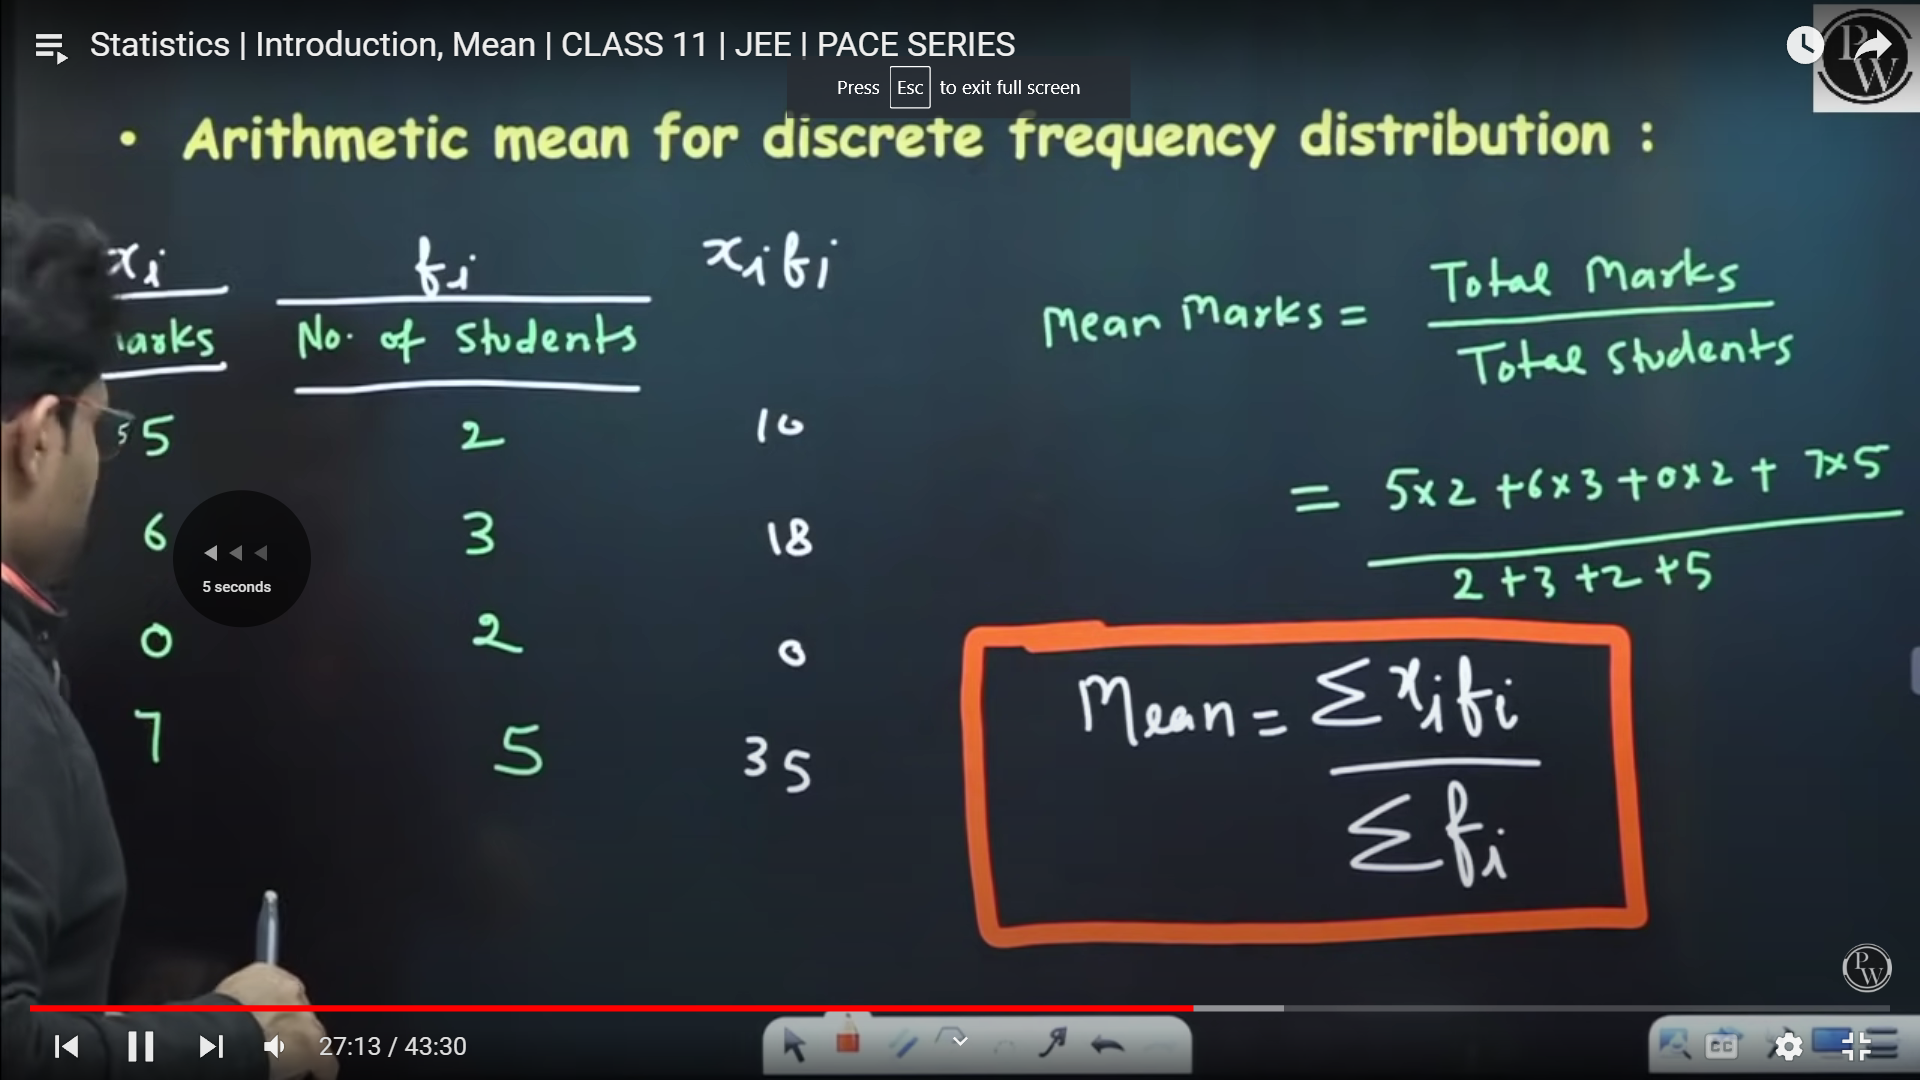 Statistics | Introduction, Mean | CLASS 11 | JEE | PACE SERIES
Press Esc to exit full screen
PW
• Arithmetic mean for discrete frequency distribution :
xi fi xifi
arks No. of students
5 5 2 10
6 3 18
0 2 0
7 5 35
Mean Marks = Total Marks
Total students
= 5×2 +6×3 +0×2 + 7×5
2 +3 +2 +5
Mean = Σ xifi
Σ fi
5 seconds
PW
27:13 / 43:30
CC